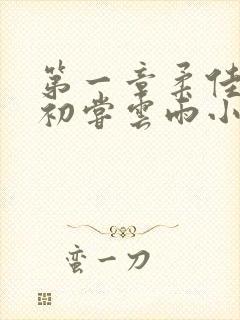 第一章柔佳
初尝雲雨小
蛮一刀